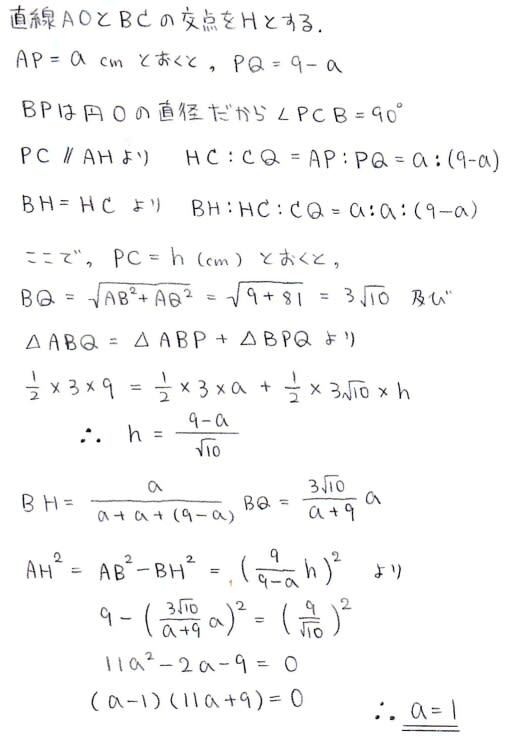 直線AOとBCの交点をHとする.
AP = a cm とおくと, PQ = 9 - a
BPは円Oの直径だから∠PCB = 90°
PC // AHより HC : CQ = AP : PQ = a : (9-a)
BH = HC より BH : HC : CQ = a : a : (9-a)
ここで, PC = h (cm) とおくと,
BQ = √(AB²+AQ²) = √(9+81) = 3√10 及び
△ABQ = △ABP + △BPQ より
1/2 × 3 × 9 = 1/2 × 3 × a + 1/2 × 3√10 × h
∴ h = (9-a)/√10
BH = a/(a+a+(9-a)) BQ = 3√10/(a+9) a
AH² = AB² - BH² = (9/(9-a) h)² より
9 - (3√10/(a+9) a)² = (9/√10)²
11a² - 2a - 9 = 0
(a-1)(11a+9) = 0 ∴ a = 1